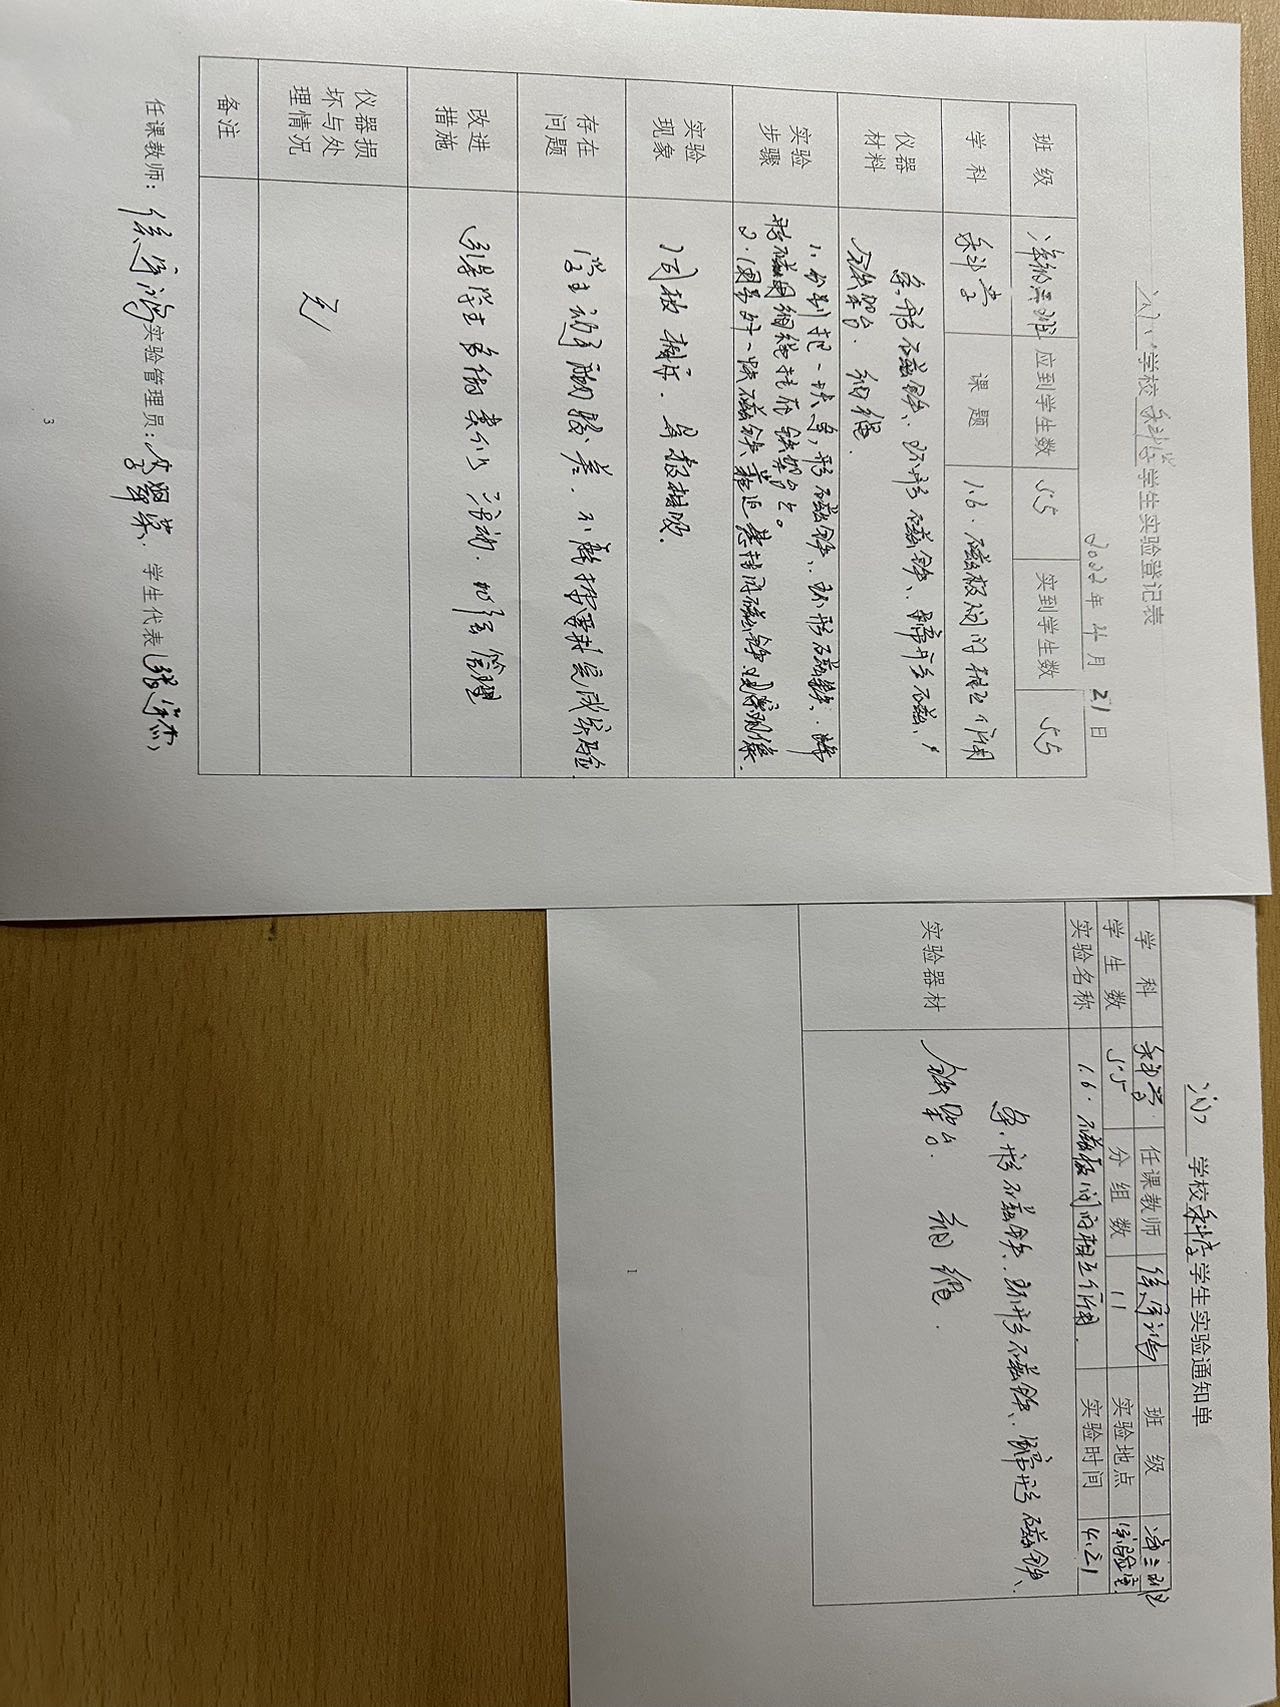 学校科学学生实验登记表
2022年4月21日
班 级 应到学生数 55 实到学生数 55
学 科 科学 课 题 1.6.磁极间的相互作用
仪器
材料
条形磁铁、环形磁铁、蹄形磁
铁架台. 细绳.
实验
步骤
1.分别把一块条形磁铁、环形磁铁、蹄
形磁用细绳挂在铁架台上。
2.用另外一块磁铁靠近悬挂的磁铁
实验
现象
同极相斥.异极相吸.
存在
问题
学生动手 差.不能按要求完成实验
改进
措施
引导学生多做类似活动. 管理
仪器损
坏与处
理情况
无
备注
任课教师: 实验管理员: 学生代表
3
学校科学学生实验通知单
学 科 科学 任课教师 班 级
学 生 数 55 分 组 数 11 实验地点 实验室
实验名称 1.6.磁极间的相互作用. 实验时间 4.21
实验器材
条形磁铁、环形磁铁、蹄形磁铁、
铁架台. 细绳.
1